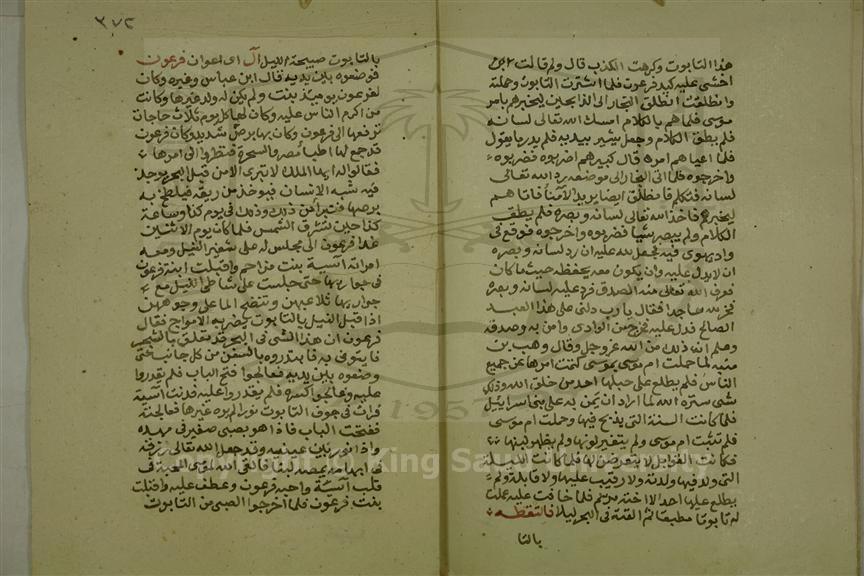 هذا التابوت وكرهت الكذب قال ولم قالت
اخشى عليه كيد فرعون فلما اشترت التابوت وحملته
وانطلقت انطلق النجار الى الذباحين ليخبرهم بامر
موسى فلما هم بالكلام امسك الله تعالى لسانه
فلم يطق الكلام وجعل يشير بيديه فلم يدر ما يقول
فلما اعياهم امره قال كبيرهم اضربوه فضربوه
واخرجوه فلما اتى النجار الى موضعه رد الله تعالى
لسانه فتكلم فانطلق ايضا يريد الامنا فاتاهم
ليخبرهم فاخذ الله تعالى لسانه وبصره فلم يطق
الكلام ولم يبصر شيا فضربوه واخرجوه فوقع فى
واد يهوى فيه فجعل لله عليه ان رد لسانه وبصره
ان لا يدل عليه وان يكون معه يحفظه حيث ما كان
فعرف الله تعالى منه الصدق فرد عليه لسانه وبصره
فخر لله ساجدا فقال يا رب دلنى على هذا العبد
الصالح فدل عليه فخرج من الوادى وامن به وصدقه
وعلم ان ذلك من الله عز وجل وقال وهب بن
منبه لما حملت ام موسى بموسى كتمت امرها عن جميع
الناس فلم يطلع على حبلها احد من خلق الله وذلك
شى ستره الله لما اراد ان يمن به على بنى اسرائيل
فلما كانت السنة التى يذبح فيها وحملت ام موسى
فلم تنبت ام موسى ولم يتغير لونها ولم يظهر لبنها
فكانت القوابل لا يتعرضن لها فلما كانت الليلة
التى ولد فيها ولدته ولا رقيب عليها ولا قابلة ولم
يطلع عليها احد الا اخته مريم فلما خافت عليه عملت
له تابوتا مطبقا ثم القته فى البحر ليلا فالتقطه
بالتا
٣٧٢
بالتابوت صبيحة الليل آل اى اعوان فرعون
فوضعوه بين يديه قال ابن عباس وغيره وكان
لفرعون يوميذ بنت ولم يكن له ولد غيرها وكانت
من اكرم الناس عليه وكان لها كل يوم ثلاث حاجات
ترفعها الى فرعون وكان بها برص شديد وكان فرعون
قد جمع لها اطبا مصر والسحرة فنظروا الى امرها
فقالوا له ايها الملك لا تبرى الا من قبل البحر يوجد
فيه شبه الانسان فيوخذ من ريقه فيلطخ به
برصها فتبرا من ذلك وذلك فى يوم كذا وساعة
كذا حين تشرق الشمس فلما كان يوم الاثنين
غدا فرعون الى مجلس له على شفير النيل ومعه
امراته آسية بنت مزاحم واقبلت ابنة فرعون
فى جواريها حتى جلست على شاطى النيل مع
جواريها تلاعبهن وتنضح الما على وجوههن
اذا قبل النيل بالتابوت يضربه الامواج فقال
فرعون ان هذا الشى فى البحر قد تعلق بالشجر
فايتونى به فابتدروه بالسفن من كل جانب حتى
وضعوه بين يديه فعالجوا فتح الباب فلم يقدروا
عليه وعالجوا كسره فلم يقدروا عليه فدنت آسية
فرات فى جوف التابوت نورا لم يره غيرها فعالجته
ففتحت الباب فاذا هو بصبى صغير فى مهده
واذا نور بين عينيه وقد جعل الله تعالى رزقه
فى ابهامه يمصه لبنا فالقى الله لموسى المحبة فى
قلب آسية واحبه فرعون وعطف عليه واقبلت
بنت فرعون فلما اخرجوا الصبى من التابوت
King Saud University
1957